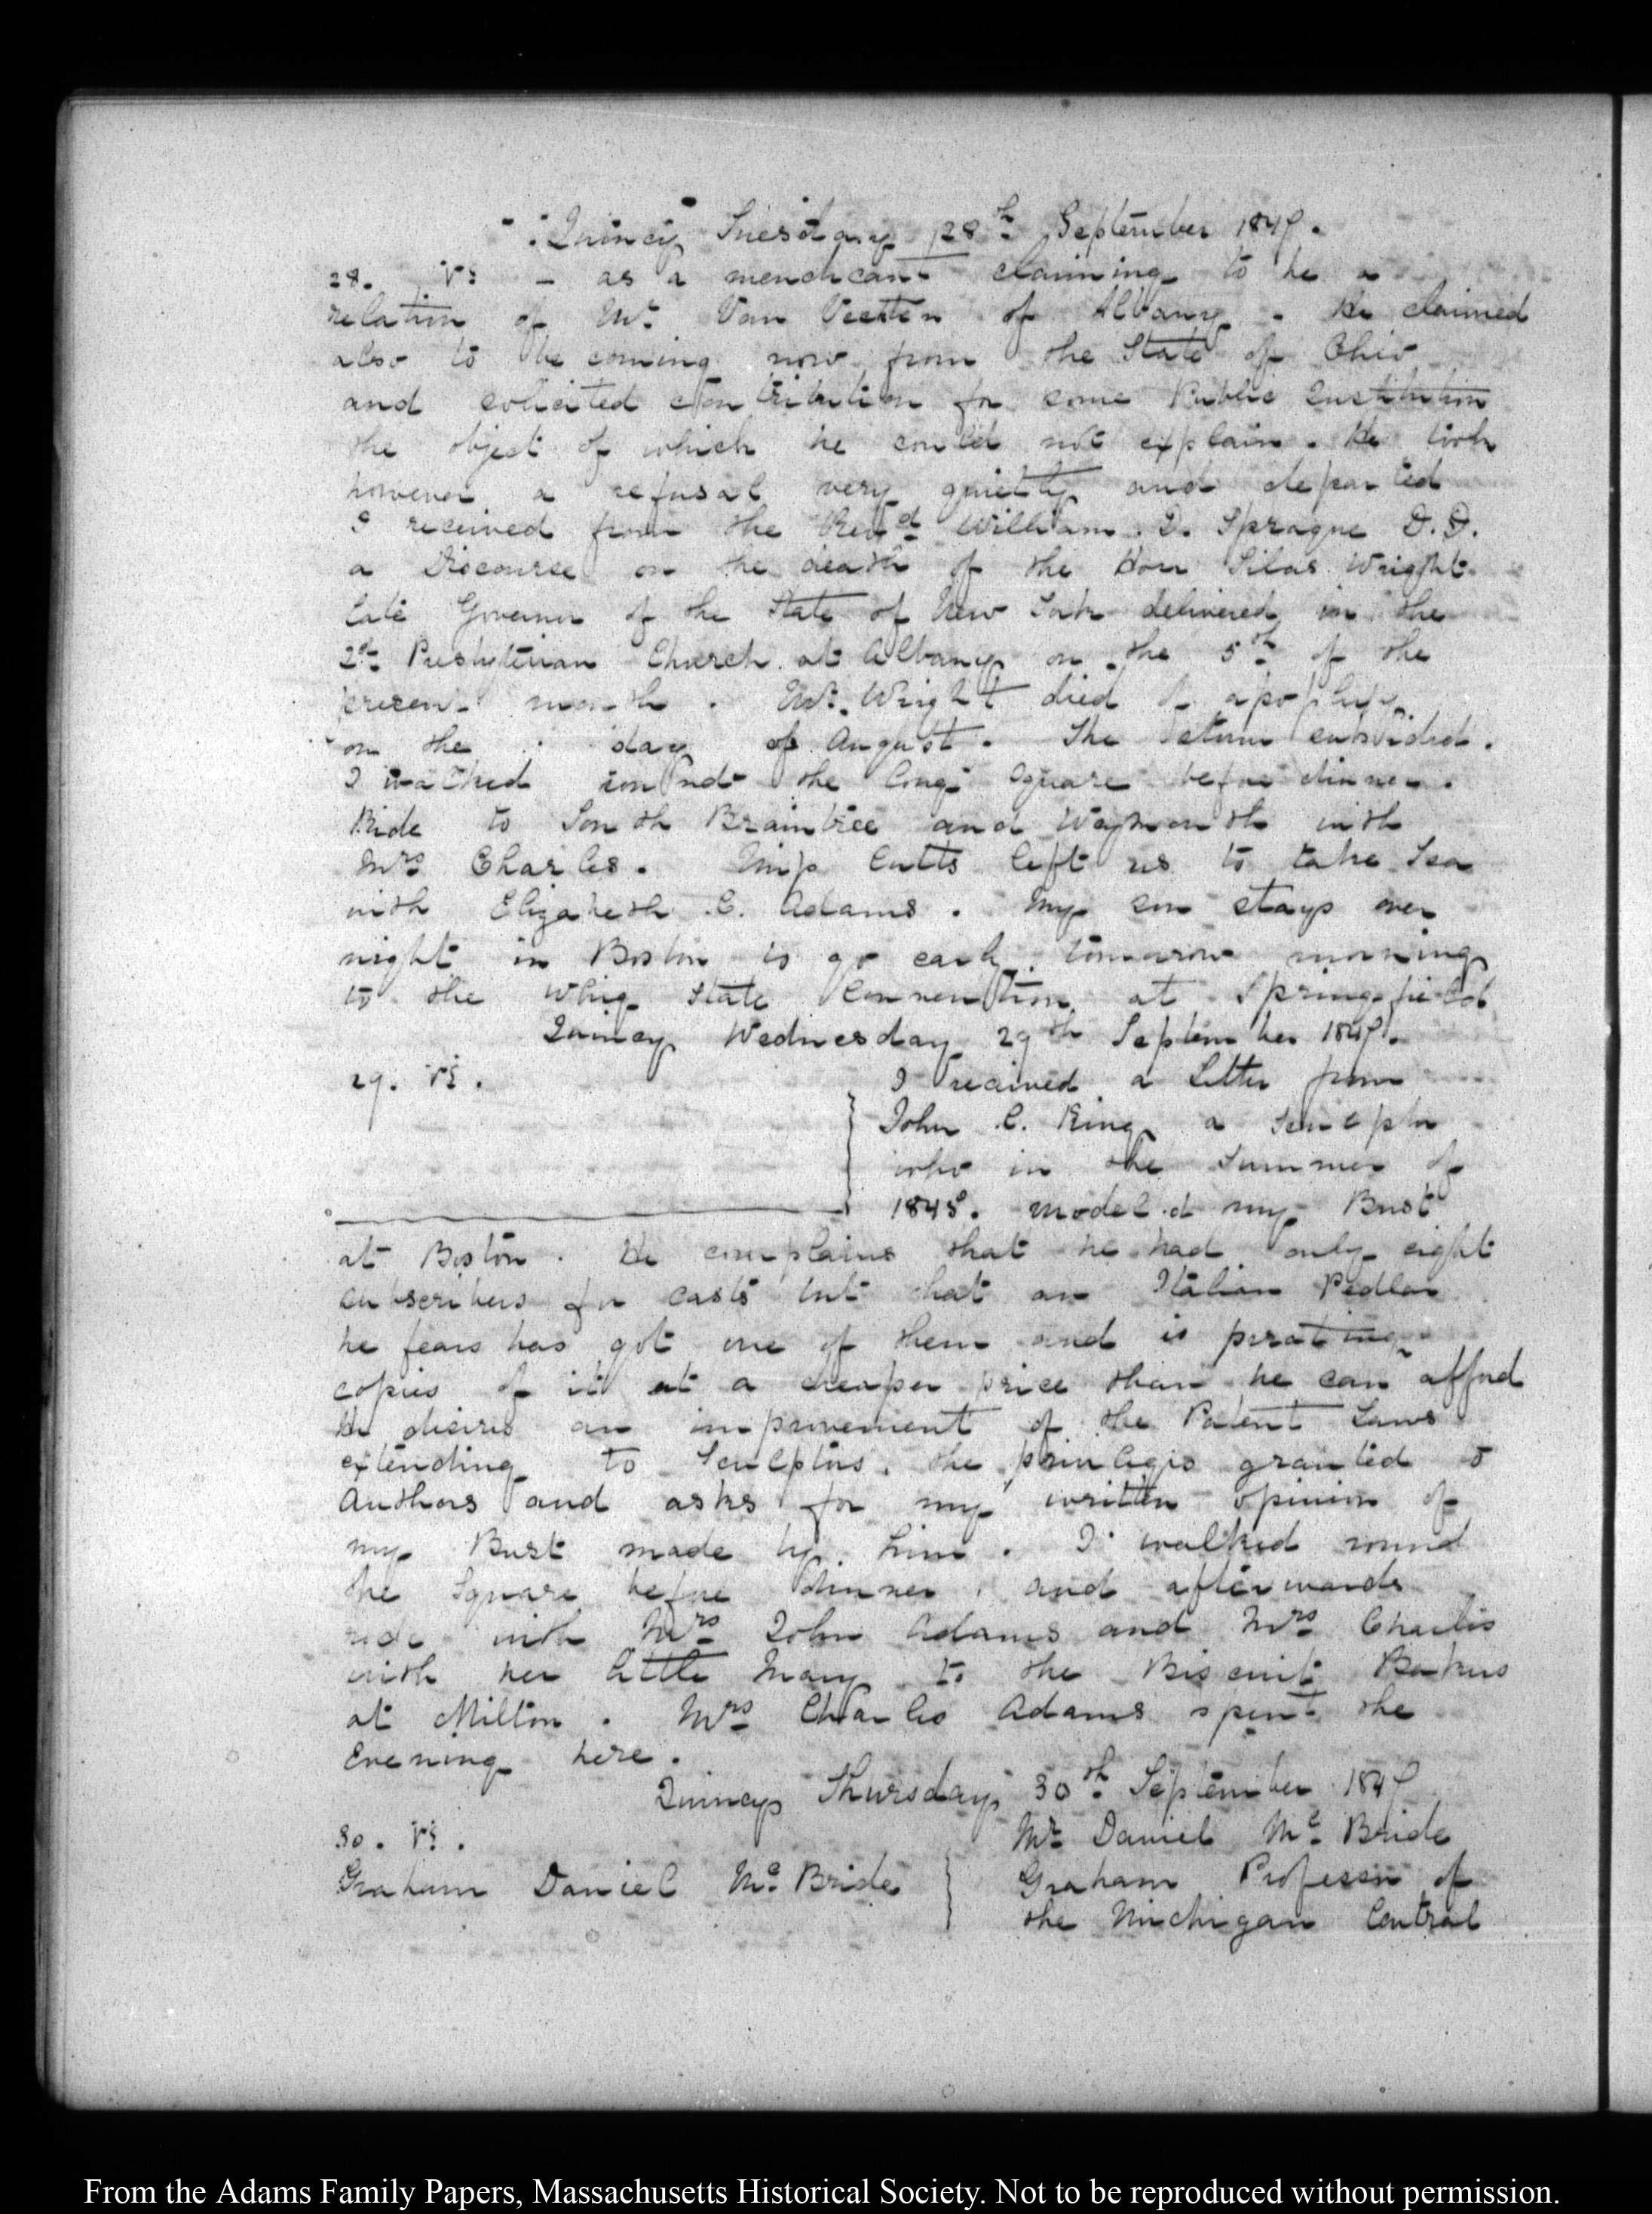 Quincy Tuesday 28th September 1847.
28. VI. – as a mendicant claiming to be a
relation of Mr. Van Vechten of Albany. He claimed
also to be coming now from the State of Ohio
and solicited contribution for some Public Institution
the object of which he could not explain. He took
however a refusal very quietly and departed
I received from the Revd William Sprague D.D.
a Discourse on the death of the Hon Silas Wright
late Governor of the State of New York delivered in the
2d Presbyterian Church at Albany on the 5th of the
present month. Mr. Wright died of apoplexy
on the day of August. The subsided.
I walked round the long Square before dinner.
Ride to South Braintree and Weymouth with
Mrs Charles. Miss Cutts left us to take Tea
with Elizabeth C. Adams. My son stays over
night in Boston to go early tomorrow morning
to the Whig State Convention at Springfield
Quincy Wednesday 29th September 1847.
29. VI. I received a Letter from
John C. King a Sculptor
who in the Summer of
1845. modeled my Bust
at Boston. He complains that he had only eight
subscribers for casts but that an Italian Pedlar
he fears has got one of them and is pirating
copies of it at a cheaper price than he can afford
He desires an improvement of the Patent Laws
extending to Sculptors, the privileges granted to
Authors and asks for my written opinion of
my Bust made by him. I walked round
the Square before dinner, and afterwards
ride with Mrs John Adams and Mrs Charles
with her little Mary to the Biscuit Bakers
at Milton. Mrs Charles Adams spent the
Evening here.
Quincy Thursday 30th September 1847
30. VI. Mr Daniel Mc Bride
Graham Daniel Mc Bride } Graham Professor of
the Michigan Central
From the Adams Family Papers, Massachusetts Historical Society. Not to be reproduced without permission.